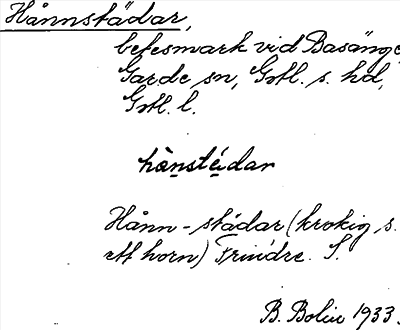 Hånnstädar,
betesmark vid Basänge
Garde sn, Gotl. s. hd,
Gotl. l.
hànstédar
Hånn-städar (krokig s.
ett horn) Frindre. S.
B. Bolin 1933.